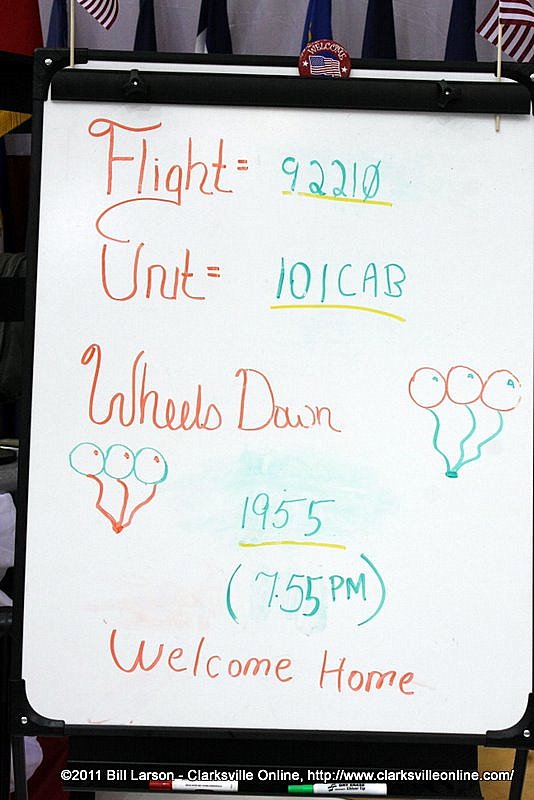 WELCOME
Flight= 92210
Unit= 101CAB
Wheels Down
1955
(7:55 PM)
Welcome Home
©2011 Bill Larson - Clarksville Online, http://www.clarksvilleonline.com/